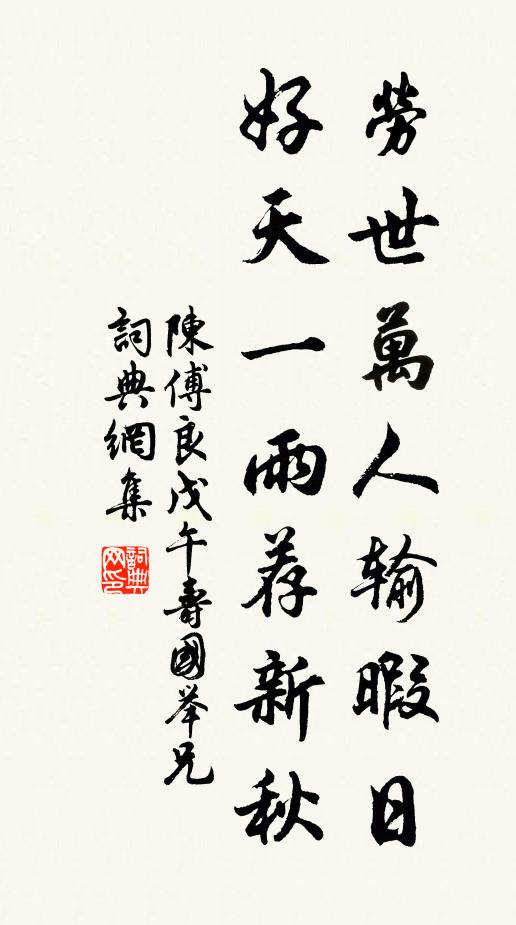 勞世萬人輸暇日
好天一雨荐新秋
陳傅良戊午壽國舉兄
詞典網集
詞典网印